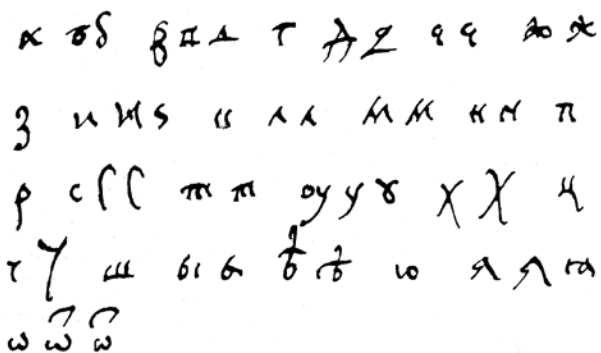 а б б в в д г д д е е ж ж
з и и ѕ и л л м м н н п
р с с с т т оу у ꙋ х х ц
ч ч ш ы ь ѣ ѣ ю ѧ ѧ ꙗ
ѡ ѿ ѿ